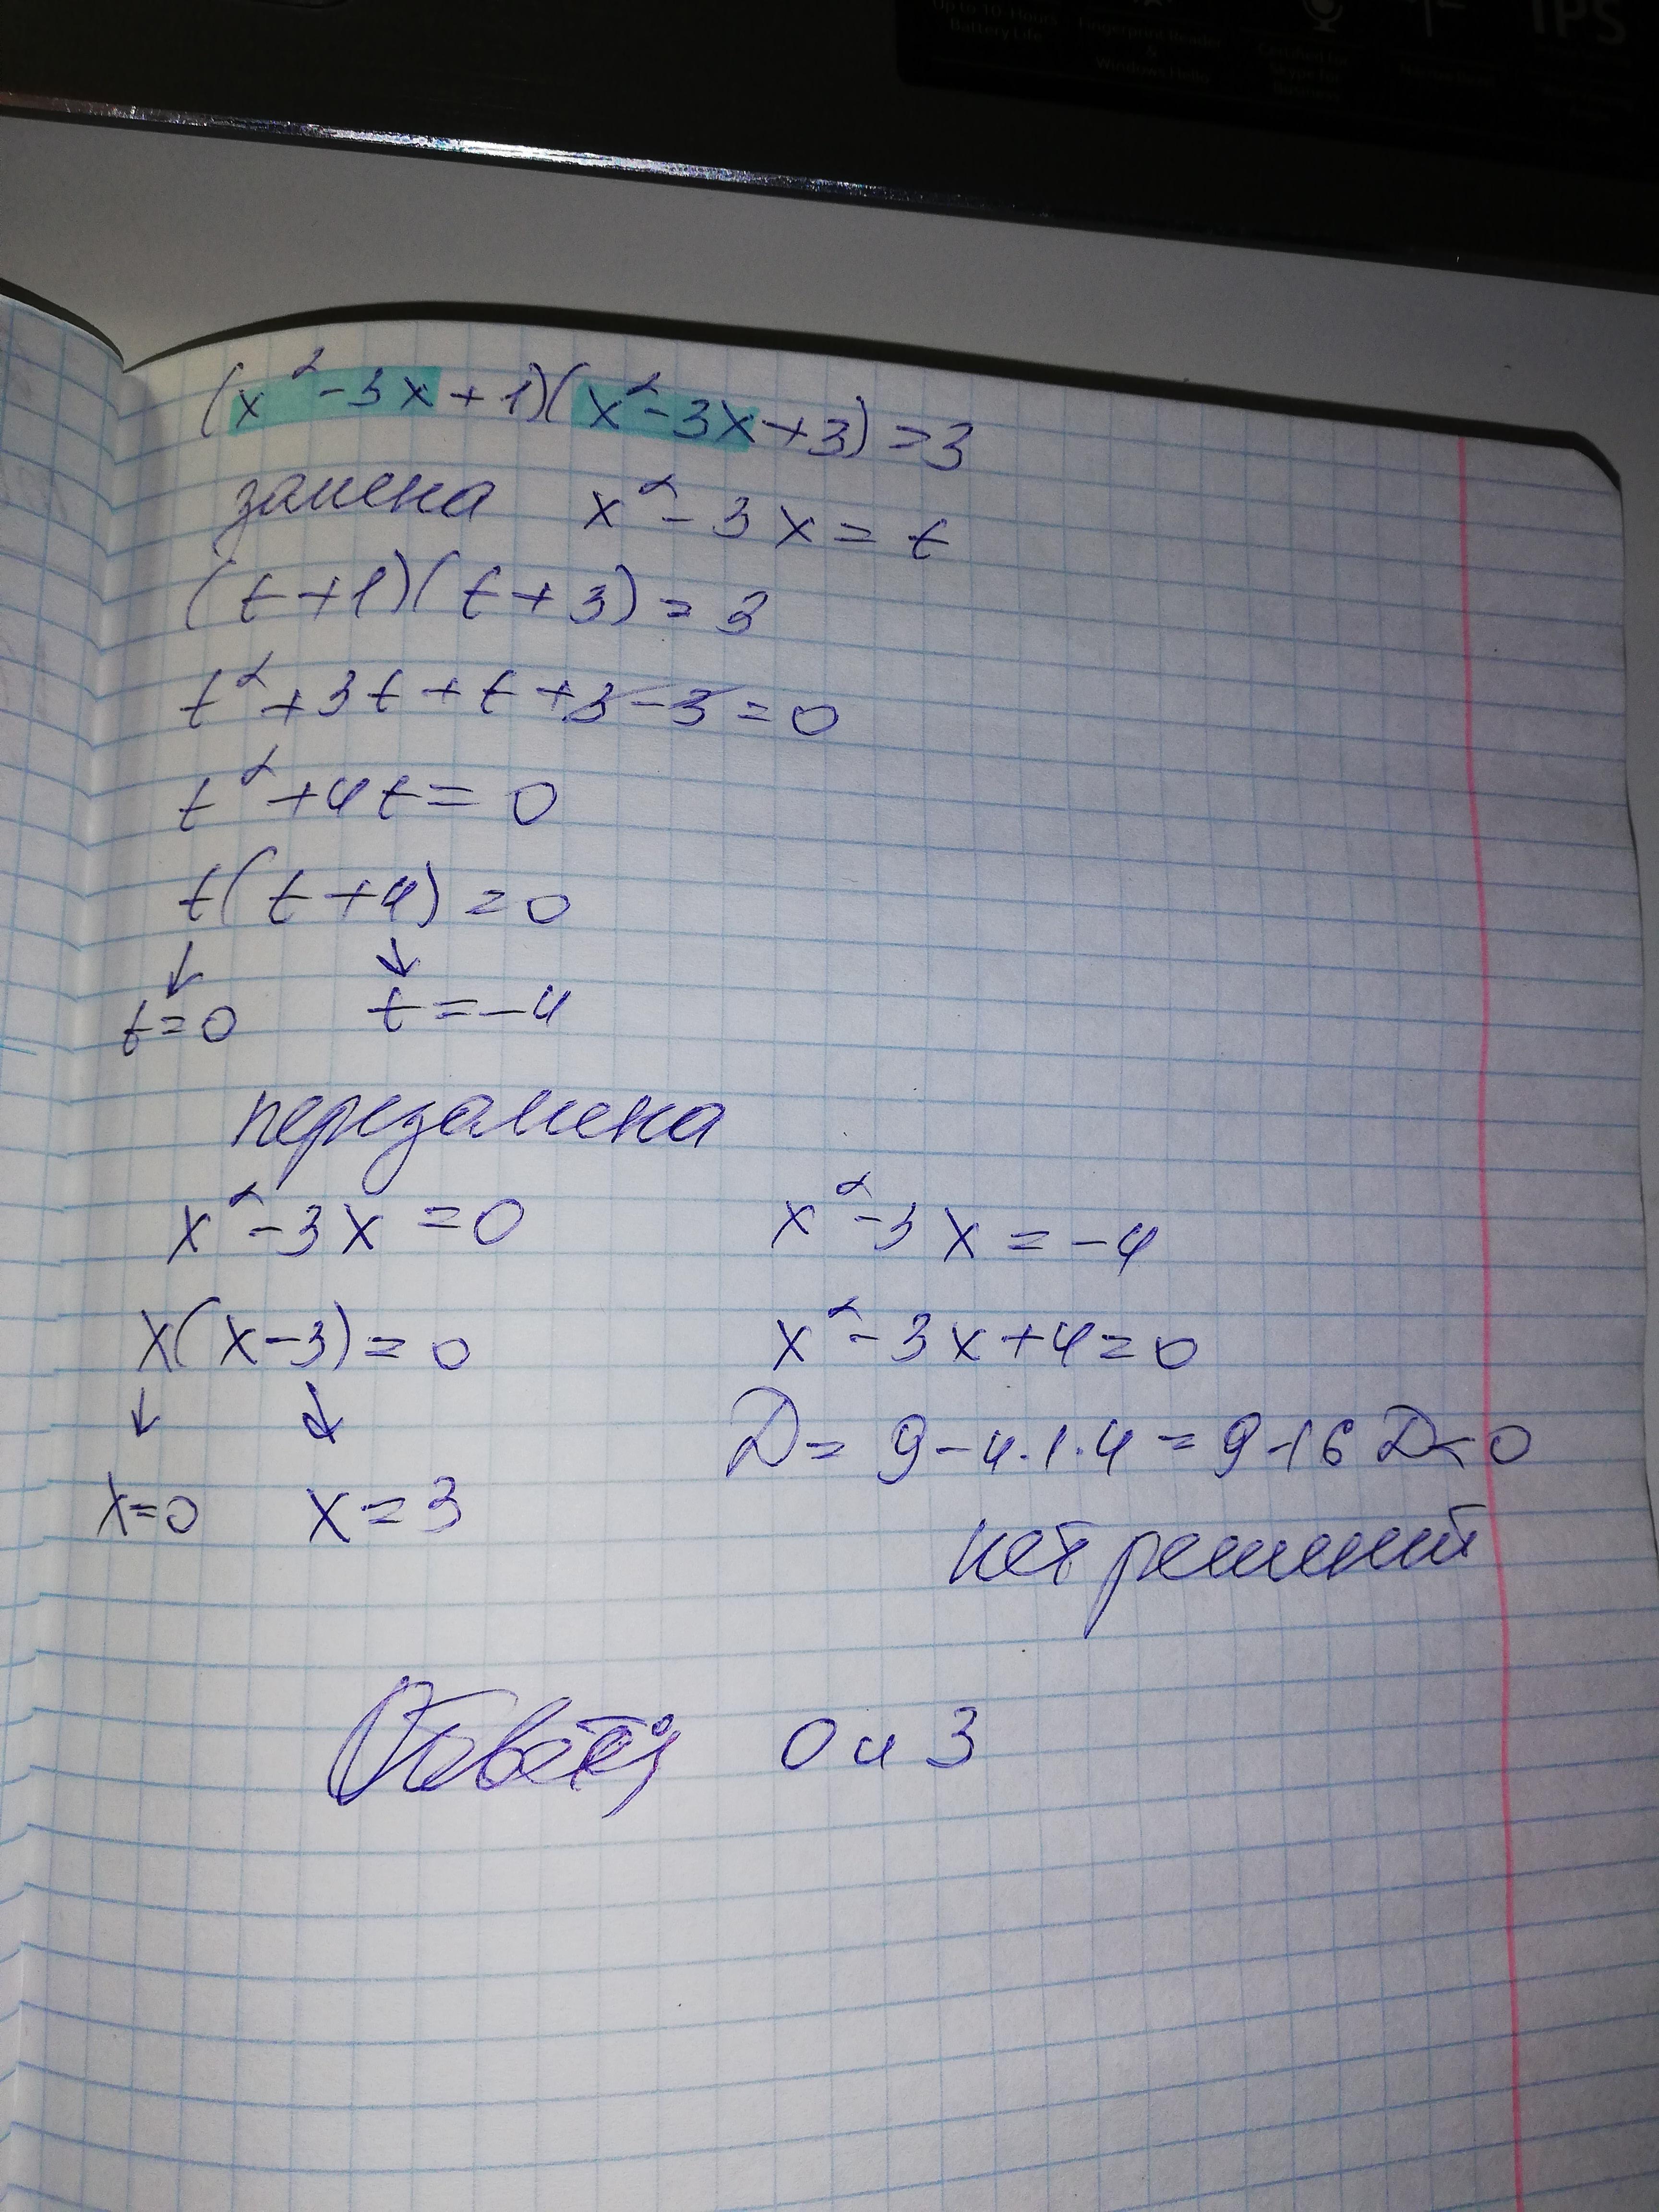 Up to 10-Hours
Battery Life
Fingerprint Reader
&
Windows Hello
Certified for
Skype for
Business
IPS
(x²-3x+1)(x²-3x+3)=3
замена x²-3x=t
(t+1)(t+3)=3
t²+3t+t+3-3=0
t²+4t=0
t(t+4)=0
↓ ↓
t=0 t=-4
перезамена
x²-3x=0 x²-3x=-4
x(x-3)=0 x²-3x+4=0
↓ ↓
x=0 x=3
D=9-4·1·4=9-16 D<0
нет решений
Ответ: 0 и 3